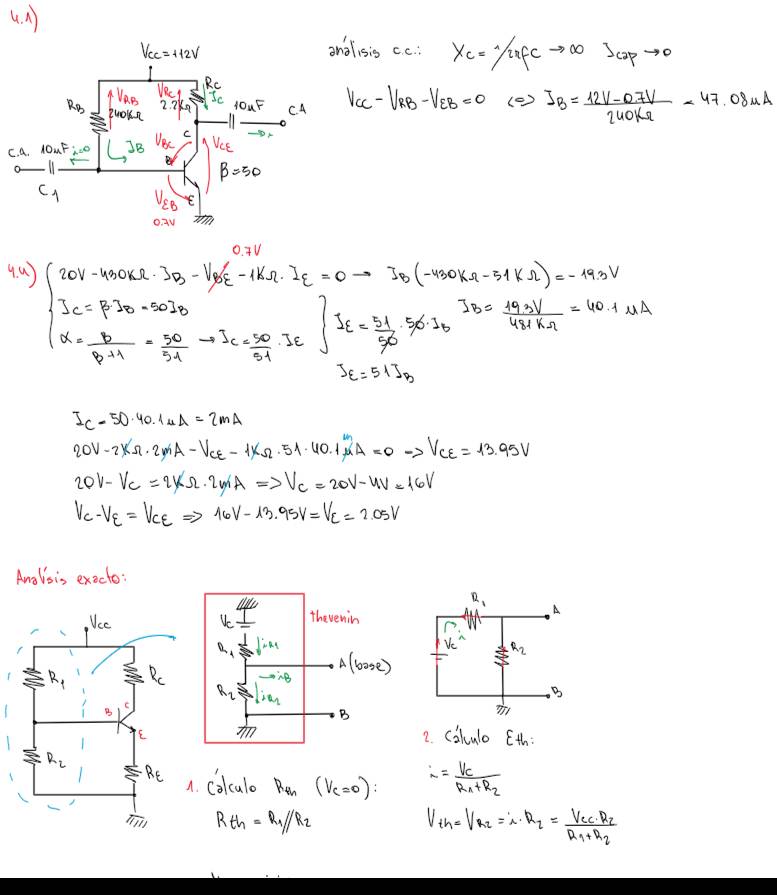 4.1)
Vcc = +12V
RB
VRB
240KΩ
VRC
2.2KΩ
RC
IC
10uF
C.A
c.a.
10uF
i=0
IB
C1
VBC
C
B
VCE
E
β=50
VEB
0.7V
análisis c.c.: Xc = 1/2πfC → ∞ Icap → 0
Vcc - VRB - VEB = 0 <=> IB = 12V-0.7V / 240KΩ = 47.08uA
4.4)
0.7V
20V - 430KΩ · IB - VBE - 1KΩ · IE = 0 → IB (-430KΩ - 51KΩ) = -19.3V
IC = β·IB = 50IB
IB = 19.3V / 481KΩ = 40.1 uA
α = β / β+1 = 50/51 → IC = 50/51 · IE
IE = 51/50 · 50 · IB
IE = 51IB
IC = 50·40.1uA = 2mA
20V - 2KΩ · 2mA - VCE - 1KΩ · 51 · 40.1uA = 0 -> VCE = 13.95V
m
20V - VC = 2KΩ · 2mA => VC = 20V - 4V = 16V
VC - VE = VCE => 16V - 13.95V = VE = 2.05V
Analísis exacto:
Vcc
R1
RC
B
C
E
R2
RE
thevenin
Vc
R1
iR1
iB
A (base)
R2
iR2
B
1. Cálculo Rth (Vc=0):
Rth = R1//R2
R1
A
Vc
i
R2
B
2. Cálculo Eth:
i = Vc / R1+R2
Vth = VR2 = i·R2 = Vcc·R2 / R1+R2